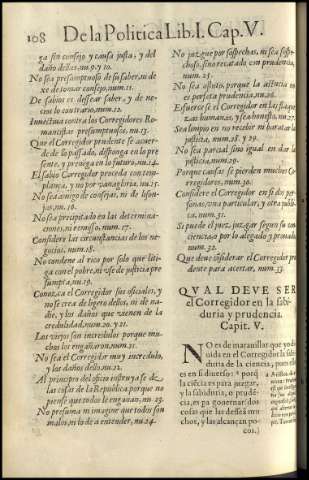 108 De la Politica Lib. I. Cap. V.
ga sin consejo y causa justa, y del
daño dellas, nu.9. y 10.
No sea presumptuoso de su saber, ni de
xe de tomar consejo, num.11.
De sabios es dessear saber, y de ne-
cios lo contrario, num.12.
Inuectiua contra los Corregidores Ro-
mancistas presumptuosos, nu.13.
Que el Corregidor prudente se acuer-
de de lo passado, disponga en lo pre
sente, y preuenga en lo futuro, nu.14.
El sabio Corregidor proceda con tem-
plança, y no por vanagloria. nu.15.
No sea amigo de consejas, ni de lison-
jas, nu.16.
No sea precipitado en las determina-
ciones, ni remisso, num. 17.
Considere las circunstancias de los ne-
gocios, num.18.
No condene al rico por solo que liti-
ga con el pobre, ni vse de justicia pre
sumpta, nu.19.
Conozca el Corregidor sus oficiales, y
no se crea de ligero dellos, ni de na-
die, y los daños que vienen de la
credulidad, num.20. y 21.
Los viejos son increibles porque mu-
chos los engañaron, num.21.
No sea el Corregidor muy incredulo,
y los daños dello.22.
Al principio del oficio instruyase de
las cosas de la Republica porque no
piense que todos le engañan, nu.23.
No presuma ni imagine que todos son
malos, ni lo dè a entender, nu.24.
No juzgue por sospechas, ni sea sospe-
choso, sino recatado con prudencia,
num. 25.
No sea astuto, porque la astucia no
es perfeta prudencia, nu.26.
Esfuerce se el Corregidor en las espera
zas humanas, y sea honesto, nu.27.
Sea limpio en no recebir ni baratar la
justicia, num.28. y 29.
No sea parcial sino igual en dar la
justicia, num.29.
Porque causas se pierden muchos Co
rregidores, num.30.
Considere el Corregidor en si dos per-
sonas, vna particular, y otra publi-
ca. num.31.
Si puede el juez, juzgar segun su con
ciencia, o por lo alegado y prouado,
num.32.
Que deue considerar el Corregidor pru
dente para acertar, num.33.
QVAL DEVE SER
el Corregidor en la sabi-
duria y prudencia.
Capit. V.
NO es de marauillar que yo di
uida en el Corregidor la sabi
duria de la ciencia, pues ellas
es en si diuerso: a porq̃
la ciẽcia es para juzgar,
y la sabiduria, o prudẽ-
cia, es pa gouernar: dos
cosas que les desseã mu
chos, y las alcançan po
cos.)